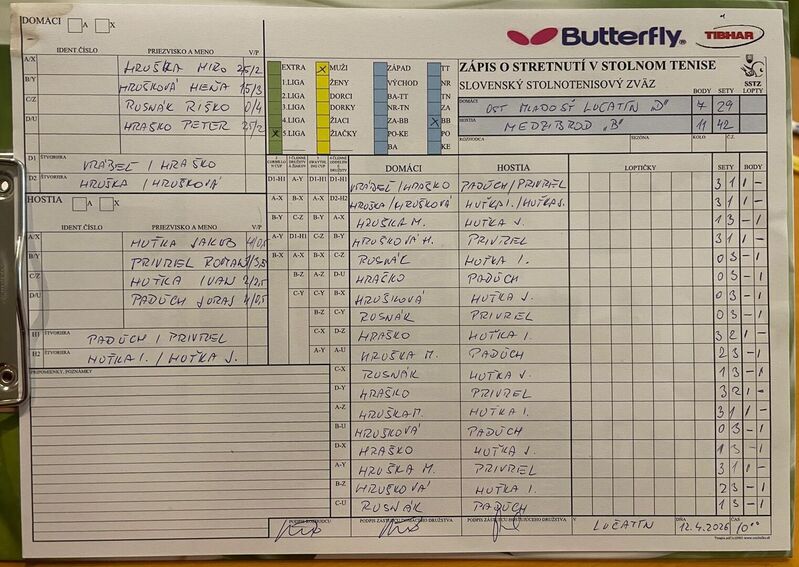 DOMÁCI A X
IDENT.ČÍSLO PRIEZVISKO A MENO V/P
A/X HRUŠKA MIRO 2,5/2
B/Y HRUŠKOVÁ HEŇA 1,5/3
C/Z RUSNÁK RIŠKO 0/4
D/U HRAŠKO PETER 2,5/2
D1 ŠTVORHRA VRÁBEĽ / HRAŠKO
D2 ŠTVORHRA HRUŠKA / HRUŠKOVÁ
HOSTIA A X
IDENT ČÍSLO PRIEZVISKO A MENO V/P
A/X HUŤKA JAKUB 4/0,5
B/Y PRIVREL ROMAN 1/3,5
C/Z HUŤKA IVAN 2/2,5
D/U PADÚCH JURAJ 4/0,5
H1 ŠTVORHRA PADÚCH / PRIVREL
H2 ŠTVORHRA HUŤKA I. / HUŤKA J.
PRIPOMIENKY, POZNÁMKY
Butterfly TIBHAR
ZÁPIS O STRETNUTÍ V STOLNOM TENISE
SLOVENSKÝ STOLNOTENISOVÝ ZVÄZ
SSTZ
BODY SETY LOPTY
DOMÁCI OST MLADOSŤ LUČATÍN "D" 7 29
HOSTIA MEDZIBROD "B" 11 42
ROZHODCA SEZÓNA KOLO Č.Z.
EXTRA X MUŽI ZÁPAD TT
1.LIGA ŽENY VÝCHOD NR
2.LIGA DORCI BA-TT TN
3.LIGA DORKY NR-TN ZA
4.LIGA ŽIACI ZA-BB X BB
X 5.LIGA ŽIAČKY PO-KE PO
BA KE
DOMÁCI HOSTIA LOPTIČKY SETY BODY
D1-H1 A-Y D1-H1 D1-H1 VRÁBEĽ/HRAŠKO PADÚCH/PRIVREL 3 1 1 -
A-X B-X A-X D2-H2 HRUŠKA/HRUŠKOVÁ HUŤKA I./HUŤKA J. 3 1 1 -
B-Y C-Z B-Y A-X HRUŠKA M. HUŤKA J. 1 3 - 1
A-Y D1-H1 C-Z B-Y HRUŠKOVÁ H. PRIVREL 3 1 1 -
B-X A-X B-X C-Z RUSNÁK HUŤKA I. 0 3 - 1
B-Z A-Z D-U HRAČKO PADÚCH 0 3 - 1
C-Y C-Y B-X HRUŠKOVÁ HUŤKA J. 0 3 - 1
B-Z C-Y RUSNÁK PRIVREL 0 3 - 1
C-X D-Z HRAŠKO HUŤKA I. 3 2 1 -
A-Y A-U HRUŠKA M. PADÚCH 2 3 - 1
C-X RUSNÁK HUŤKA J. 1 3 - 1
D-Y HRAŠKO PRIVREL 3 2 1 -
A-Z HRUŠKA M. HUŤKA I. 3 1 1 -
B-U HRUŠKOVÁ PADÚCH 0 3 - 1
D-X HRAŠKO HUŤKA J. 1 3 - 1
A-Y HRUŠKA M. PRIVREL 3 1 1 -
B-Z HRUŠKOVÁ HUŤKA I. 2 3 - 1
C-U RUSNÁK PADÚCH 1 3 - 1
PODPIS ROZHODCU PODPIS ZÁSTUPCU DOMÁCEHO DRUŽSTVA PODPIS ZÁSTUPCU HOSŤUJÚCEHO DRUŽSTVA V LUČATÍN DŇA 12.4.2026 ČAS 10°°